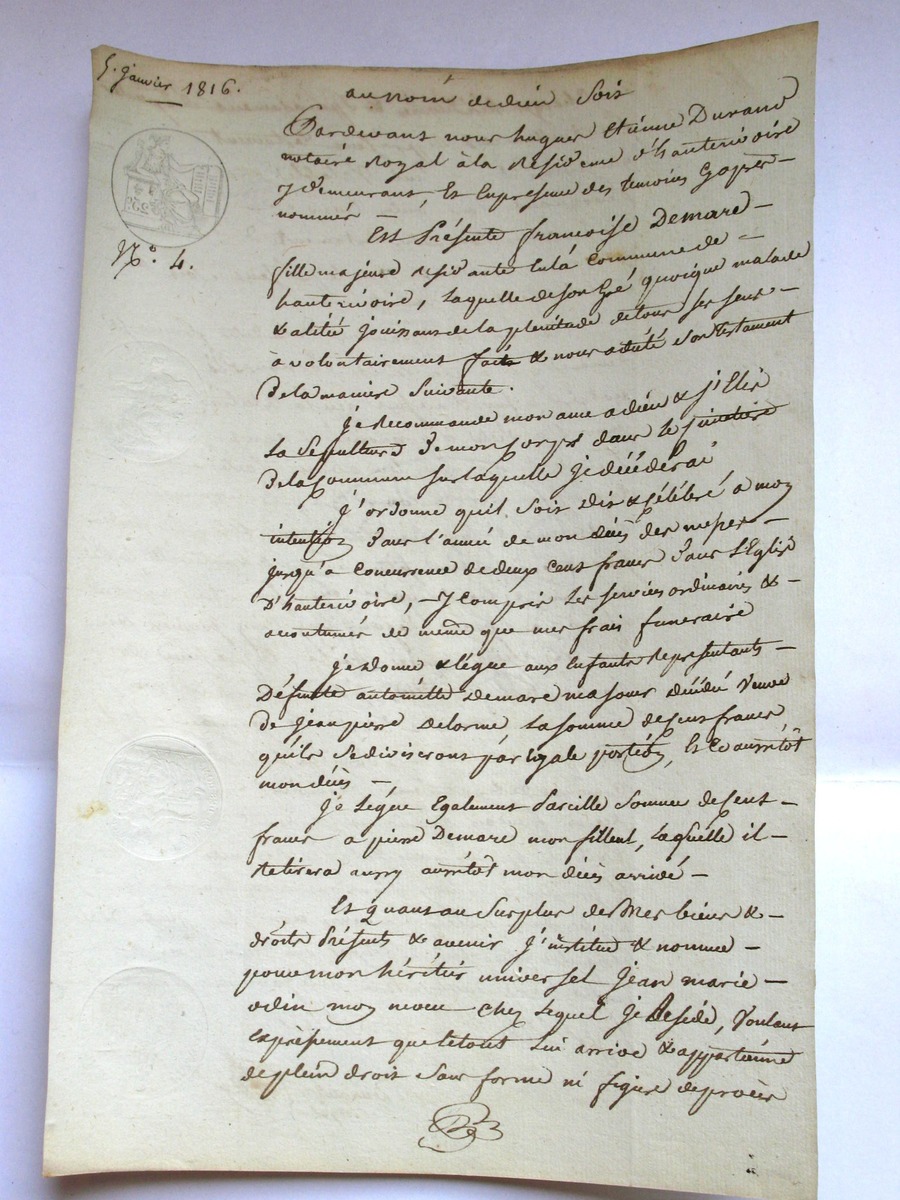 5. janvier 1816.
au nom de dieu soit
Pardevant nous hugues Etienne Durand
notaire Royal à la Residence d'hauterivoire
y demeurant, Et En presence des temoins Sy apres
nommés —
Est Présente francoise Demare —
fille majeure residante En la Commune de —
hauterivoire, laquelle de son Gré quoique malade
& alitée jouissant de la plenitude de tous ses sens —
à volontairement fait & nous a dicté son testament
De la maniere Suivante.
je Recommande mon ame a dieu & j'Elis
la Sepulture De mon Corps dans le simetiere
De la Commune sur laquelle je décéderai
J'ordonne quil soit dit & Célébré a mon
intention Dans l'année de mon décès des messes —
jusqu'a Concurrence de deux Cent francs Dans l'Eglise
D'hauterivoire, — y Compris les services ordinaires & —
acoutumés de même que mes frais funeraire
je donne & légue aux Enfants Représentants —
Défunte antoinette Demare ma sœur décédée veuve
De jean pierre Delorme la somme de Cent francs
qu'ils se diviseront par Egale portion, Et Ce aussitôt
mon décès —
Je légue Egalement Pareille Somme de Cent —
francs a pierre Demare mon fillent, laquelle il —
retirera aussy aussitôt mon décès arrivé —
Et Quant au Surplus de Mes biens & —
droits Présents & avenir j'institue & nomme —
pour mon héritier universel Jean marie —
odin mon neveu chez lequel je Reside, Voulant
expressement que le tout lui arrive & appartienne
de plein droit sans forme ni figure de procès
N.º 4.